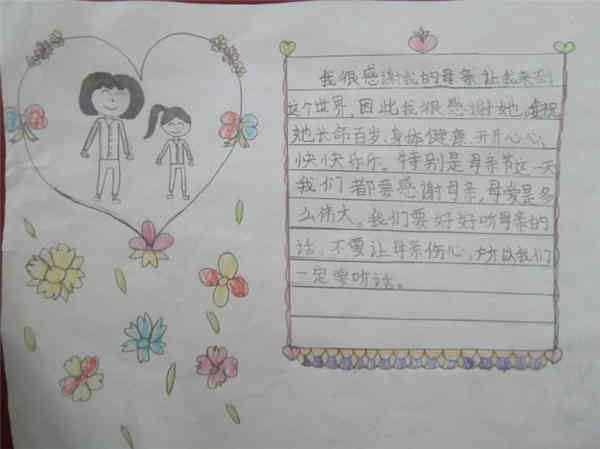 我很感谢我的母亲让我来到
这个世界,因此我很感谢她,祝
她长命百岁、身体健康、开开心心、
快快乐乐。特别是母亲节这一天
我们都要感谢母亲,母爱是多
么伟大。我们要好好听母亲的
话,不要让母亲伤心,所以我们
一定要听话。